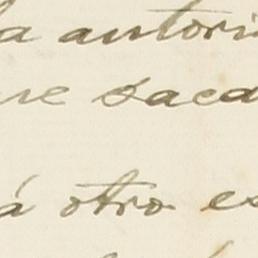 a autori
ue saca
á otro es